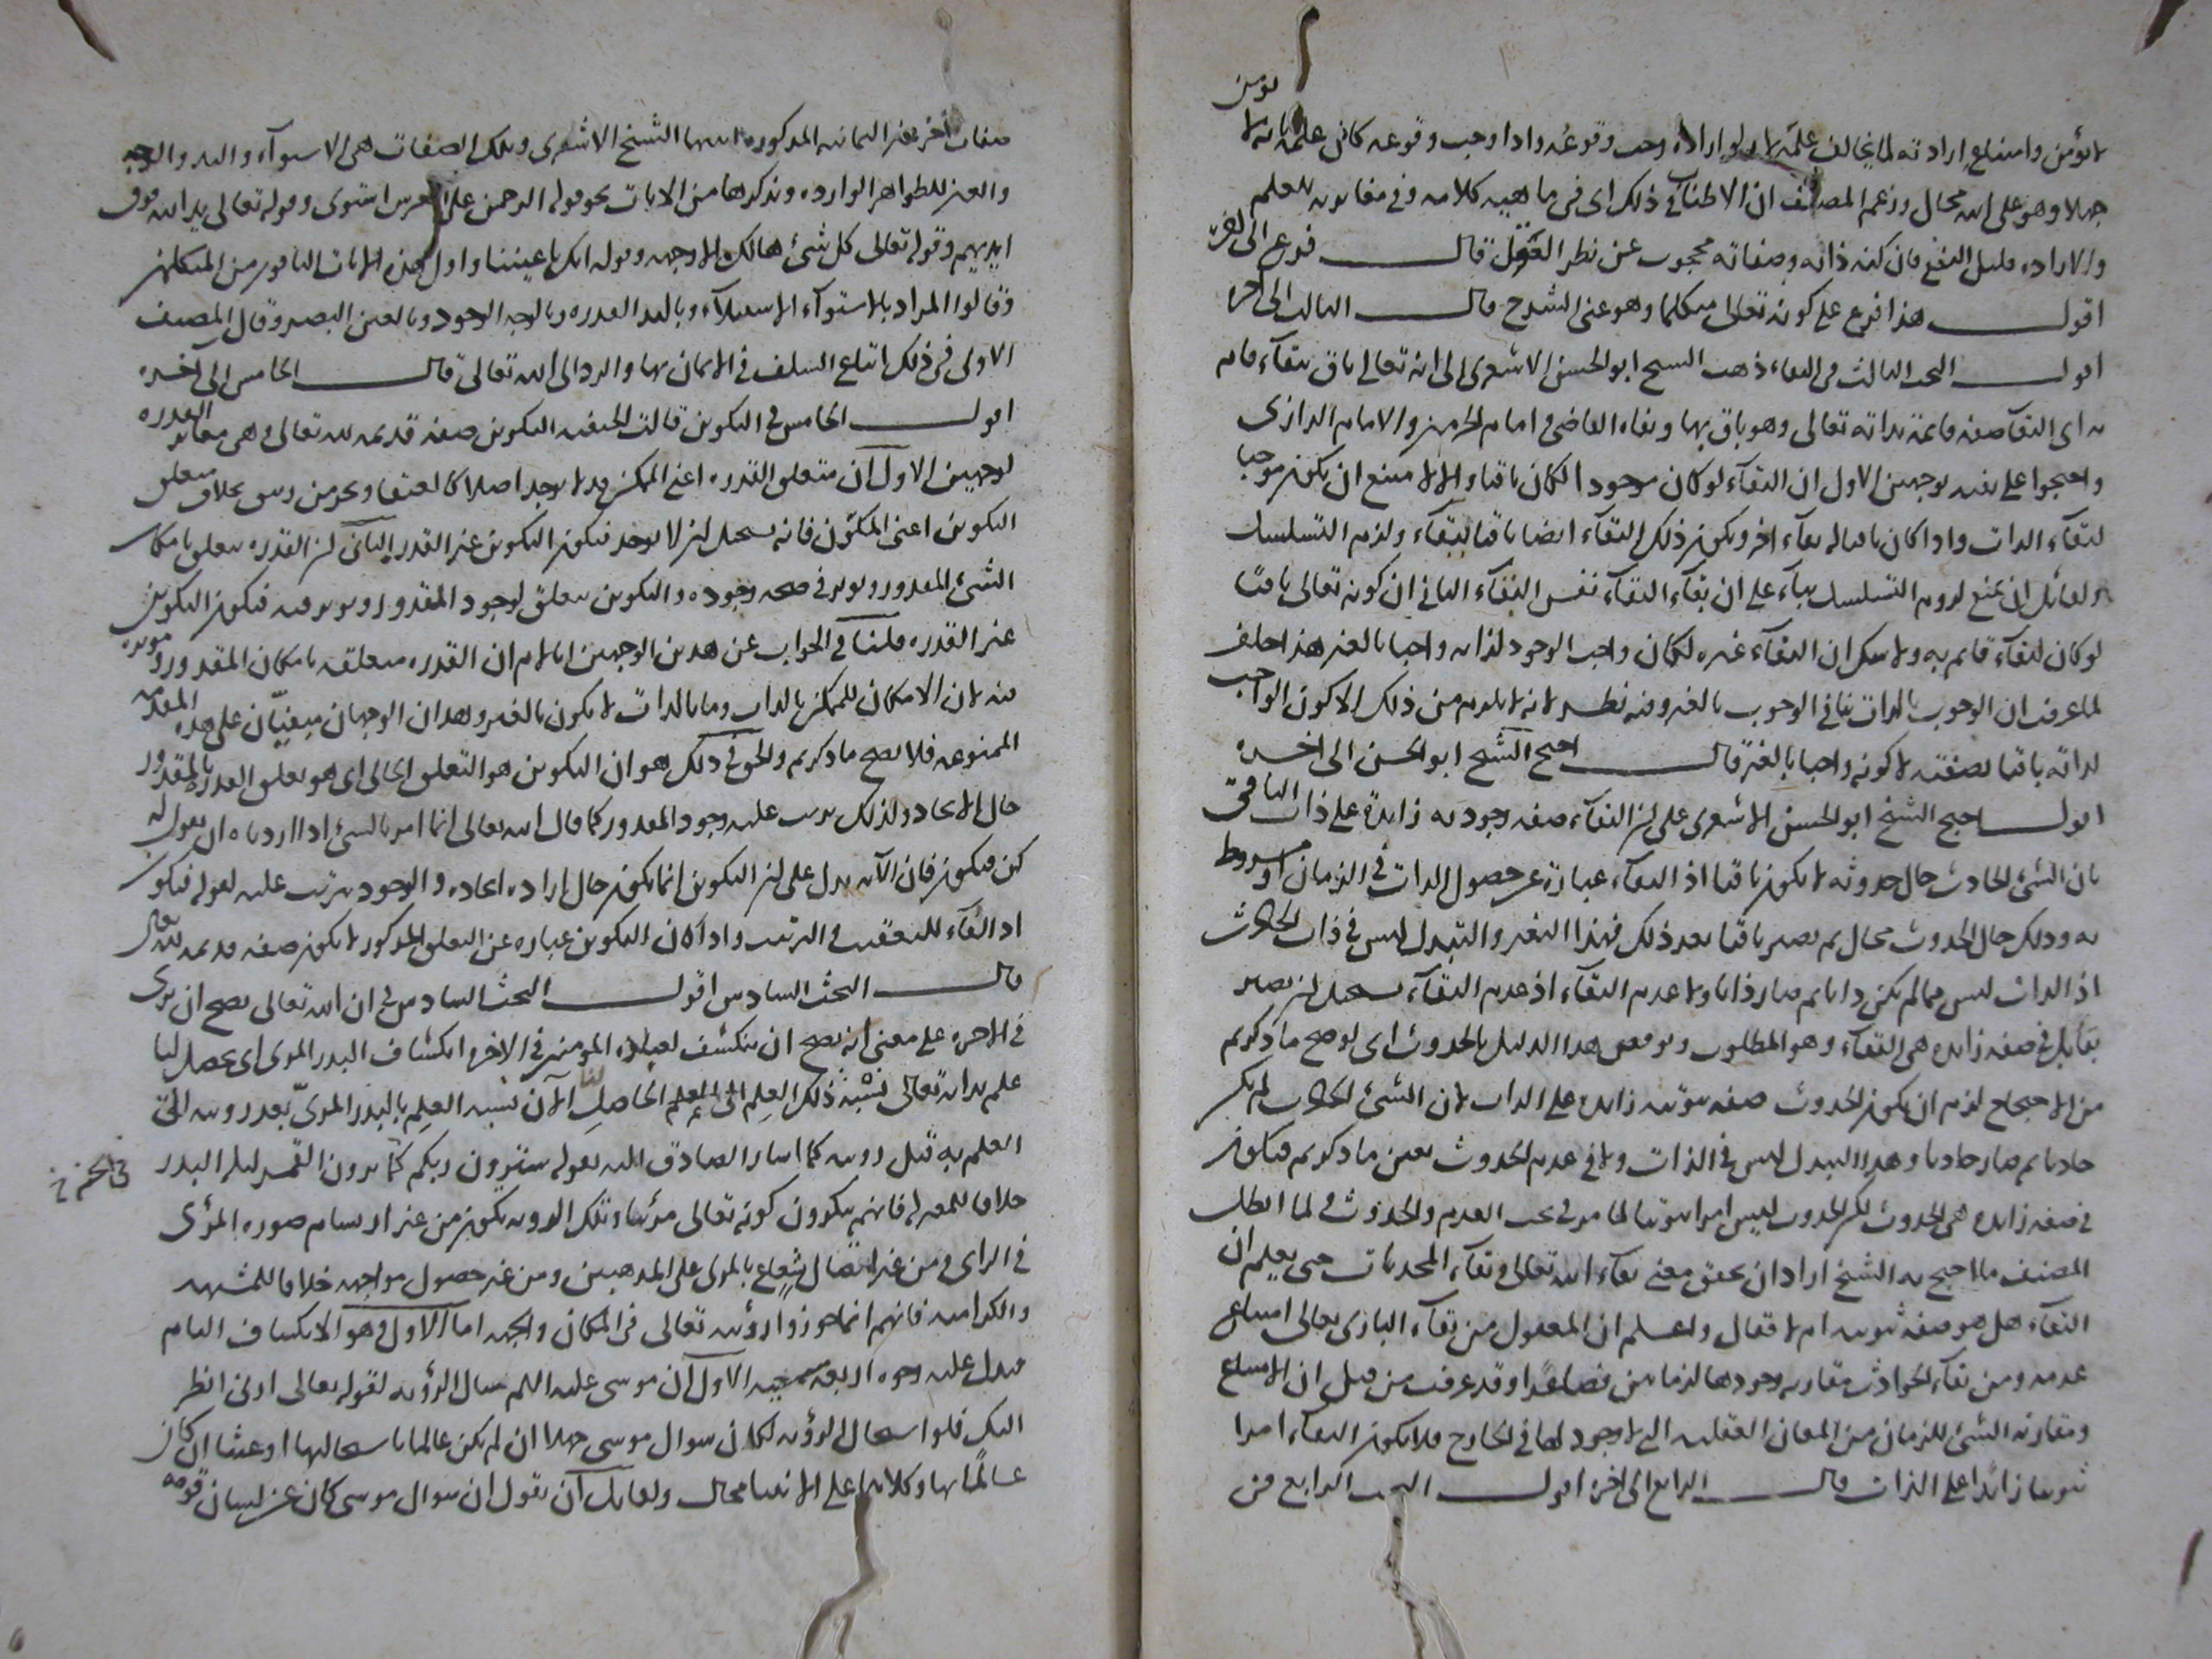 يؤمن
لا يؤمن وامتناع ارادته لما يخالف علمه لانه لو اراده وجب وقوعه واذا وجب وقوعه كان علمه بانه لا
جهلا وهو على الله محال وزعم المصنف ان الاطناب في ذلك اى فى ماهية كلامه وفى مغايرته للعلم
والارادة قليل النفع فان كنه ذاته وصفاته محجوب عن نظر العقل قال فرع الى اخره
اقول هذا فرع على كونه تعالى متكلما وهو غنى الشرح قال الثالث الى اخره
اقول البحث الثالث فى البقاء ذهب الشيخ ابو الحسن الاشعرى الى انه تعالى باق ببقاء قائم
به اى البقآء صفة قائمة بذاته تعالى وهو باق بها ونفاه القاضى و امام الحرمين والامام الرازى
واحتجوا على نفيه بوجهين الاول ان البقآء لو كان موجودا لكان باقيا والا لامتنع ان يكون موجبا
لبقآء الذات واذا كان باقيا له بقآء اخر ويكون ذلك البقآء ايضا باقيا ببقآء ولزم التسلسل
ولقائل ان يمنع لزوم التسلسل بناء على ان بقآء البقآء نفس البقآء الثانى ان كونه تعالى باقيا
لو كان لبقآء قائم به ولا شك ان البقآء غيره لكان واجب الوجود لذاته واجبا بالغير هذا خلف
لما عرفت ان الوجوب بالذات ينافى الوجوب بالغير وفيه نظر لانه لا يلزم من ذلك الا كون الواجب
لذاته باقيا بصفته لا كونه واجبا بالغير قال احتج الشيخ ابو الحسن الى اخره
اقول احتج الشيخ ابو الحسن الاشعرى على ان البقآء صفة وجودية زايدة على ذات الباقى
بان الشئ الحادث حال حدوثه لا يكون باقيا اذ البقآء عبارة عن حصول الذات فى الزمان او مشروط
به وذلك حال الحدوث محال ثم يصير باقيا بعد ذلك فهذا التغير والتبدل ليس فى ذات الحادث
اذ الذات ليس مما لم يكن ذاتا ثم صار ذاتا ولا عدم البقآء اذ عدم البقآء يستحيل ان يصير
بقآء بل فى صفة زايدة هى البقآء وهو المطلوب ونوقض هذا الدليل بالحدوث اى لو صح ما ذكرتم
من الاحتجاج لزم ان يكون الحدوث صفة ثبوتية زايدة على الذات لان الشئ الحادث لم يكن
حادثا ثم صار حادثا وهذا التبدل ليس فى الذات ولا فى عدم الحدوث بعين ما ذكرتم فيكون
فى صفة زايدة هى الحدوث لكن الحدوث ليس امرا ثبوتيا لما مر فى بحث القدم والحدوث و لما ابطل
المصنف ما احتج به الشيخ اراد ان يحقق معنى بقآء الله تعالى وبقآء المحدثات حتى يعلم ان
البقآء هل هو صفة ثبوتية ام لا فقال واعلم ان المعقول من بقآء البارى تعالى امتناع
عدمه ومن بقآء الحوادث مقارنة وجودها لزمانين فصاعدا وقد عرفت من قبل ان الامتناع
ومقارنة الشئ للزمان من المعان العقلية التى لا وجود لها فى الخارج فلا يكون البقآء امرا
ثبوتيا زائدا على الذات قال الرابع الى اخره اقول البحث الرابع فى
صفات اخر غير الثمانية المذكورة اثبتها الشيخ الاشعرى وتلك الصفات هى الاستوآء واليد والوجه
والعين للظواهر الواردة وتذكرها من الايات نحو قوله الرحمن على العرش استوى وقوله تعالى يد الله فوق
ايديهم وقوله تعالى كل شئ هالك الا وجهه وقوله انك باعيننا واول هذه الايات الباقون من المتكلمين
وقالوا المراد بالاستوآء الاستيلآء وباليد القدرة وبالوجه الوجود وبالعين البصر وقال المصنف
الاولى فى ذلك اتباع السلف فى الايمان بها والرد الى الله تعالى قال الخامس الى اخره
اقول الخامس فى التكوين قالت الحنفية التكوين صفة قديمة لله تعالى وهى مغايرة القدرة
لوجهين الاول ان متعلق القدرة اعنى الممكن قد لا يوجد اصلا كالعنقا وبحر من زيبق بخلاف متعلق
التكوين اعنى المكون فانه يستحيل ان لا يوجد فيكون التكوين غير القدرة الثانى ان القدرة يتعلق بامكان
الشئ المقدور ويؤثر فى صحة وجوده والتكوين يتعلق بوجود المقدور ويؤثر فيه فيكون التكوين
غير القدرة قلنا فى الجواب عن هذين الوجهين انا لا نم ان القدرة متعلقة بامكان المقدور ومؤثرة
فيه لان الامكان للممكن بالذات وما بالذات لا يكون بالغير وهذان الوجهان مبنيان على هذه المقدمة
الممنوعة فلا يصح ما ذكرتم والحق فى ذلك هو ان التكوين هو التعلق الحالى اى هو تعلق القدرة بالمقدور
حال الايجاد ولذلك يترتب عليه وجود المقدور كما قال الله تعالى انما امرنا لشئ اذا اردناه ان نقول له
كن فيكون فان الآية يدل على ان التكوين انما يكون حال ارادة ايجاده والوجود يترتب عليه لقوله فيكون
اذ الفآء للتعقيب و الترتيب واذا كان التكوين عبارة عن التعلق المذكور لا يكون صفة قديمة لله تعالى
قال البحث السادس اقول البحث السادس فى ان الله تعالى يصح ان يرى
فى الاخرة على معنى انه يصح ان ينكشف لعباده المومنين فى الاخرة انكشاف البدر المرئى اى يحصل لنا
علم بذاته تعالى نسبة ذلك العلم الى العلم الحاصل لنا الآن كنسبة العلم بالبدر المرئى بعد رويته الى
العلم به قبل رويته كما اشار الصادق اليه بقوله سترون ربكم كما ترون القمر ليلة البدر
خلافا للمعتزلة فانهم ينكرون كونه تعالى مرئيا وتلك الروية يكون من غير ارتسام صورة المرئى
فى الرائى و من غير اتصال شعاع بالمرئى على المذهبين ومن غير حصول مواجهة خلافا للمشبهة
والكرامية فانهم انما جوزوا رؤيته تعالى فى المكان والجهة اما الاول وهو الانكشاف التام
فيدل عليه وجوه اربعة سمعية الاول ان موسى عليه السلم سال الرؤية لقوله تعالى ارنى انظر
اليك فلو استحال الرؤية لكان سوال موسى جهلا ان لم يكن عالما باستحالتها او عبثا ان كان
عالما بها وكلاهما على الانبيا محال ولقائل ان يقول ان سوال موسى كان عن لسان قومه